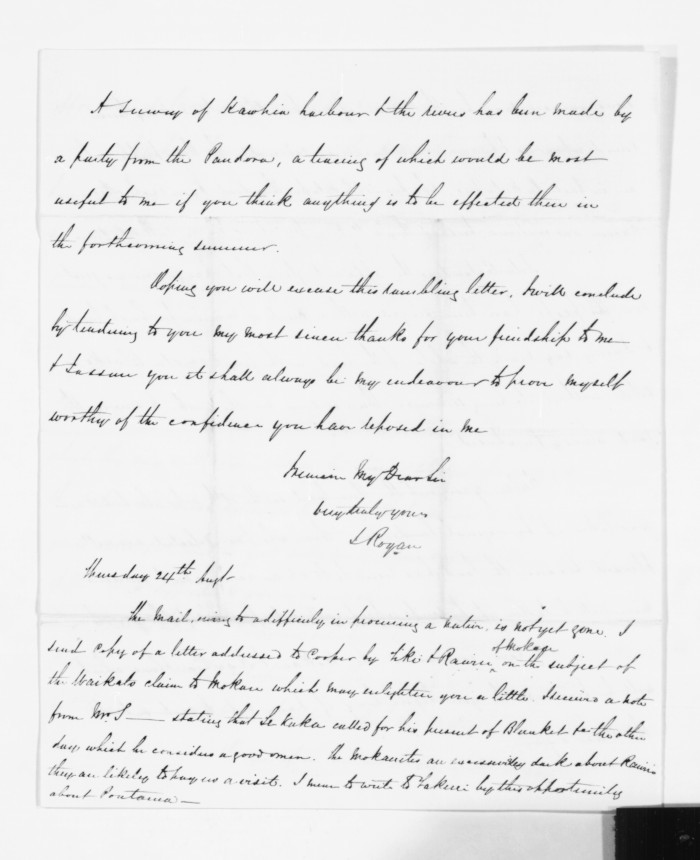 A survey of Kawhia harbour & the rivers has been made by
a party from the Pandora, a tracing of which would be most
useful to me if you think anything is to be effected there in
the forthcoming summer.
Hoping you will excuse this rambling letter, I will conclude
by tendering to you my most sincere thanks for your friendship to me
& I assure you it shall always be my endeavour to prove myself
worthy of the confidence you have reposed in me
I remain My Dear Sir
very truly yours
J Rogan
Thursday 24th Augt
The Mail, owing to a difficulty in procuring a native, is not yet gone. I
send copy of a letter addressed to Cooper by Tiki & Rawiri of Mokau on the subject of
the Waikato claim to Mokau which may enlighten you a little. I received a note
from Mr S — stating that Te Kaka called for his present of Blanket &c the other
day, which he considers a good omen. The Mokauites are excessively dark about Rawiri
they are likely to pay us a visit. I mean to write to Takerei by this opportunity
about Poutama —